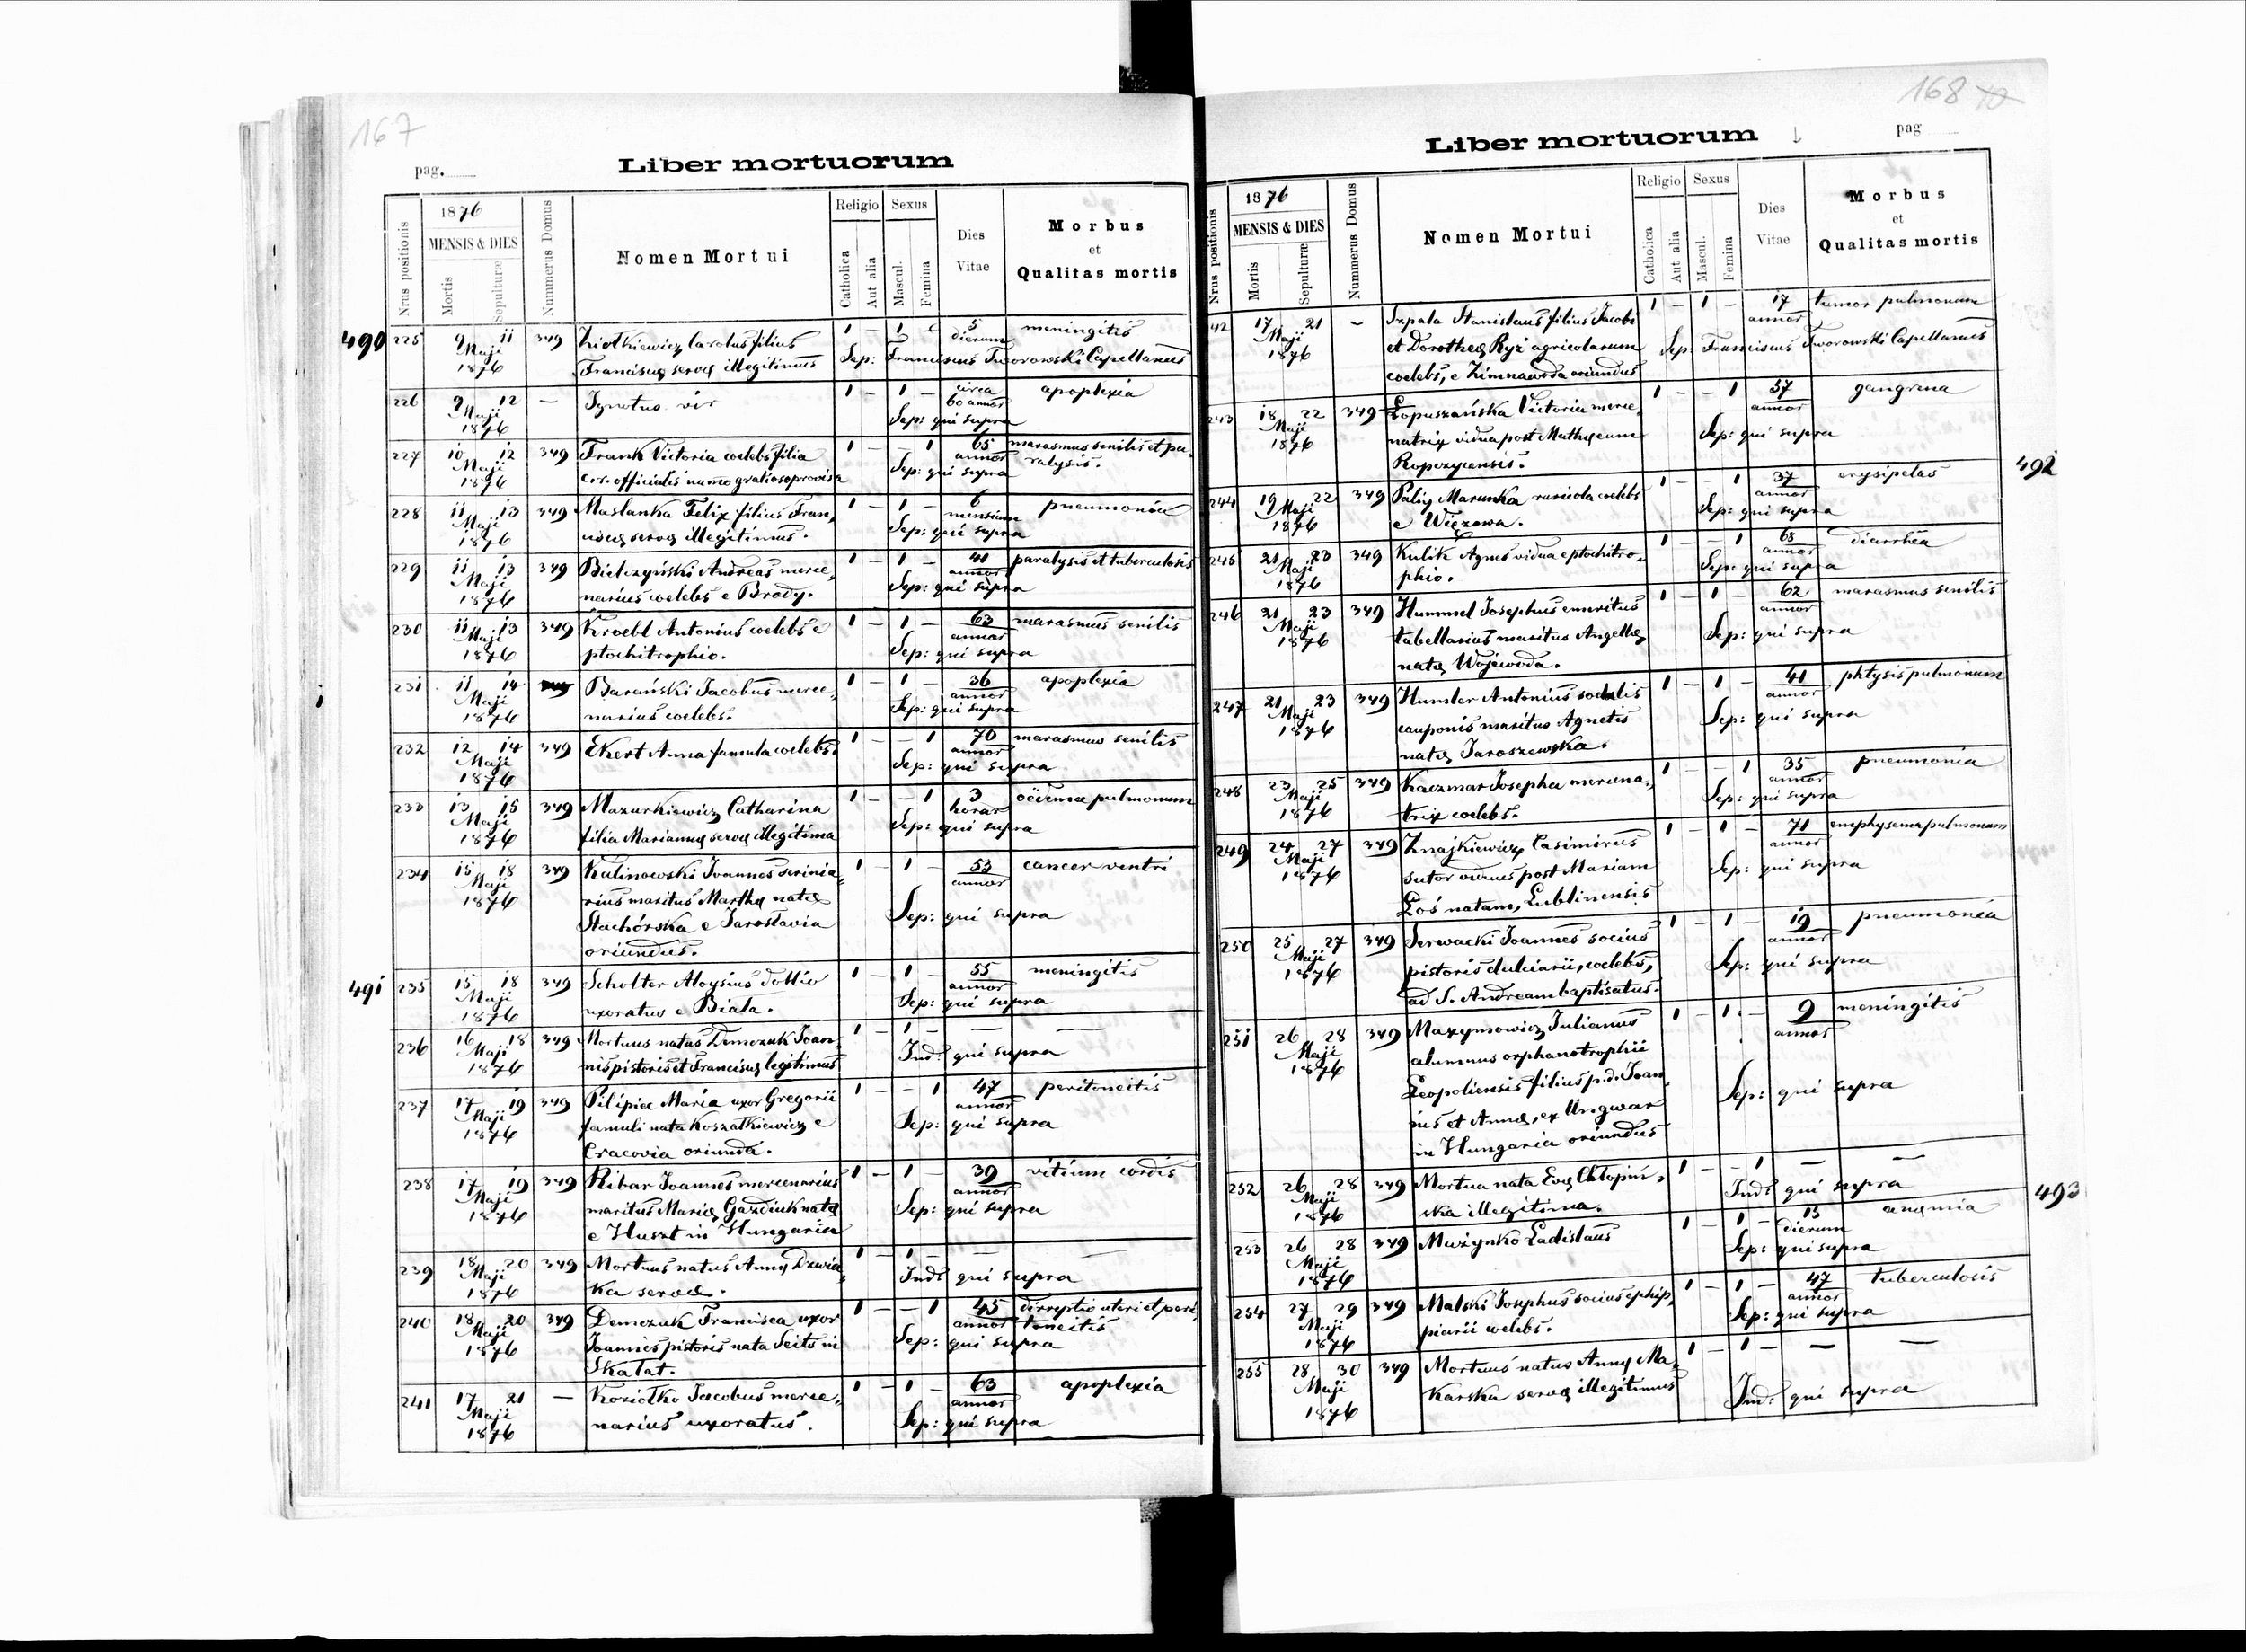 167
pag.
Liber mortuorum
Nrus positionis
1876
MENSIS & DIES
Mortis
Sepulturæ
Nummerus Domus
Nomen Mortui
Religio
Catholica
Aut alia
Sexus
Mascul.
Femina
Dies
Vitae
Morbus
et
Qualitas mortis
490
225 9 11 349 Ziolkiewicz Carolus filius 1 – 1 – 5 meningitis
Maji dierum
1876 Franciscę servę illegitimus Sep: Franciscus Tworowski Capellanus
226 9 12 — Ignotus vir 1 – 1 – circa apoplexia
Maji 60 annor
1876 Sep: qui supra
227 10 12 349 Frank Victoria coelebs filia 1 – – 1 65 marasmus senilis et pa-
Maji annor ralysis.
1876 c.r. officialis Sep: qui supra
228 11 13 349 Maslanka Felix filius Fran, 1 – 1 – 6 pneumonia
Maji mensium
1876 ciscę servę illegitimus. Sep: qui supra
229 11 13 349 Bielczyński Andreas merce, 1 – 1 – 41 paralysis et tuberculosis
Maji annor
1876 narius coelebs e Brody. Sep: qui supra
230 11 13 349 Kroebl Antonius coelebs e 1 – 1 – 63 marasmus senilis
Maji annor
1876 ptochitrophio. Sep: qui supra
231 11 14 Barański Jacobus merce, 1 – 1 – 36 apoplexia
Maji annor
1876 narius coelebs. Sep: qui supra
232 12 14 349 Ekert Anna famula coelebs. 1 – – 1 70 marasmus senilis
Maji annor
1876 Sep: qui supra
233 13 15 349 Mazurkiewicz Catharina 1 – – 1 3 oëdema pulmonum
Maji horar
1876 filia Mariannę servę illegitima Sep: qui supra
234 15 18 349 Kalinowski Joannes scrinia, 1 – 1 – 53 cancer ventri
Maji annor
1876 rius maritus Marthę natę
Stachórska e Jaroslavia Sep: qui supra
oriundus.
491
235 15 18 349 Scholter Aloysius 1 – 1 – 55 meningitis
Maji annor
1876 uxoratus e Biala. Sep: qui supra
236 16 18 349 Mortuus natus Demczuk Joan, 1 – 1 – — —
Maji
1876 nis pistoris et Franciscę legitimus Ind: qui supra
237 17 19 349 Pilipiec Maria uxor Gregorii 1 – – 1 47 peritoneitis
Maji annor
1876 famuli nata Koszalkiewicz e Sep: qui supra
Cracovia oriunda.
238 17 19 349 Ribar Joannes mercenarius 1 – 1 – 39 vitium cordis
Maji annor
1876 maritus Marię Gazdiuk natę Sep: qui supra
e Huszt in Hungaria
239 18 20 349 Mortuus natus Annę Dzwia, 1 – 1 – — —
Maji
1876 ka servę. Ind: qui supra
240 18 20 349 Demczuk Francisca uxor 1 – – 1 45 dirreptio uteri et peri,
Maji annor toneitis
1876 Joannis pistoris nata Seits in Sep: qui supra
Skalat.
241 17 21 — Koziolko Jacobus merce, 1 – 1 – 63 apoplexia
Maji annor
1876 narius uxoratus. Sep: qui supra
168
pag
Liber mortuorum
Nrus positionis
1876
MENSIS & DIES
Mortis
Sepulturæ
Nummerus Domus
Nomen Mortui
Religio
Catholica
Aut alia
Sexus
Mascul.
Femina
Dies
Vitae
Morbus
et
Qualitas mortis
42 17 21 – Szpala Stanislaus filius Jacobi 1 – 1 – 17 tumor pulmonum
Maji annor
1876 et Dorotheę Ryż agricolarum Sep: Franciscus Tworowski Capellanus
coelebs, e Zimnawoda oriundus
243 18 22 349 Łopuszańska Victoria merce, 1 – – 1 57 gangrena
Maji annor
1876 natrix vidua post Mathęum Sep: qui supra
Ropczycensis.
492
244 19 22 349 Palij Marunka ruricola coelebs 1 – – 1 37 erysipelas
Maji annor
1876 e Więzowa. Sep: qui supra
245 21 23 349 Kulik Agnes vidua e ptochitro, 1 – – 1 68 diarrhëa
Maji annor
1876 phio. Sep: qui supra
246 21 23 349 Hummel Josephus emeritus 1 – 1 – 62 marasmus senilis
Maji annor
1876 tabellarius maritus Angelę Sep: qui supra
natę Wojewoda.
247 21 23 349 Humler Antonius sodalis 1 – 1 – 41 phtysis pulmonum
Maji annor
1876 cauponis maritus Agnetis Sep: qui supra
natę Jaroszewska.
248 23 25 349 Kaczmar Josepha mercena, 1 – – 1 35 pneumonia
Maji annor
1876 trix coelebs. Sep: qui supra
249 24 27 349 Znajkiewicz Casimirus 1 – 1 – 71 emphysema pulmonum
Maji annor
1876 sutor viduus post Mariam Sep: qui supra
Łoś natam, Lublinensis
250 25 27 349 Serwacki Joannes socius 1 – 1 – 19 pneumonia
Maji annor
1876 pistoris dulciarii, coelebs, Sep: qui supra
ad S. Andream baptisatus.
251 26 28 349 Maxymowicz Julianus 1 – 1 – 9 meningitis
Maji annor
1876 alumnus orphanotrophii
Leopoliensis filius p.d. Joan, Sep: qui supra
nis et Annę, ex Ungwar
in Hungaria oriundus
252 26 28 349 Mortua nata Evę Chlopiń, 1 – – 1 — —
Maji
1876 ska illegitima. Ind: qui supra
493
253 26 28 349 Mużynko Ladislaus 1 – 1 – 15 anęmia
Maji dierum
1876 Sep: qui supra
254 27 29 349 Malski Josephus socius ephip, 1 – 1 – 47 tuberculosis
Maji annor
1876 piarii coelebs. Sep: qui supra
255 28 30 349 Mortuus natus Annę Ma, 1 – 1 – — —
Maji
1876 karska servę illegitimus Ind: qui supra